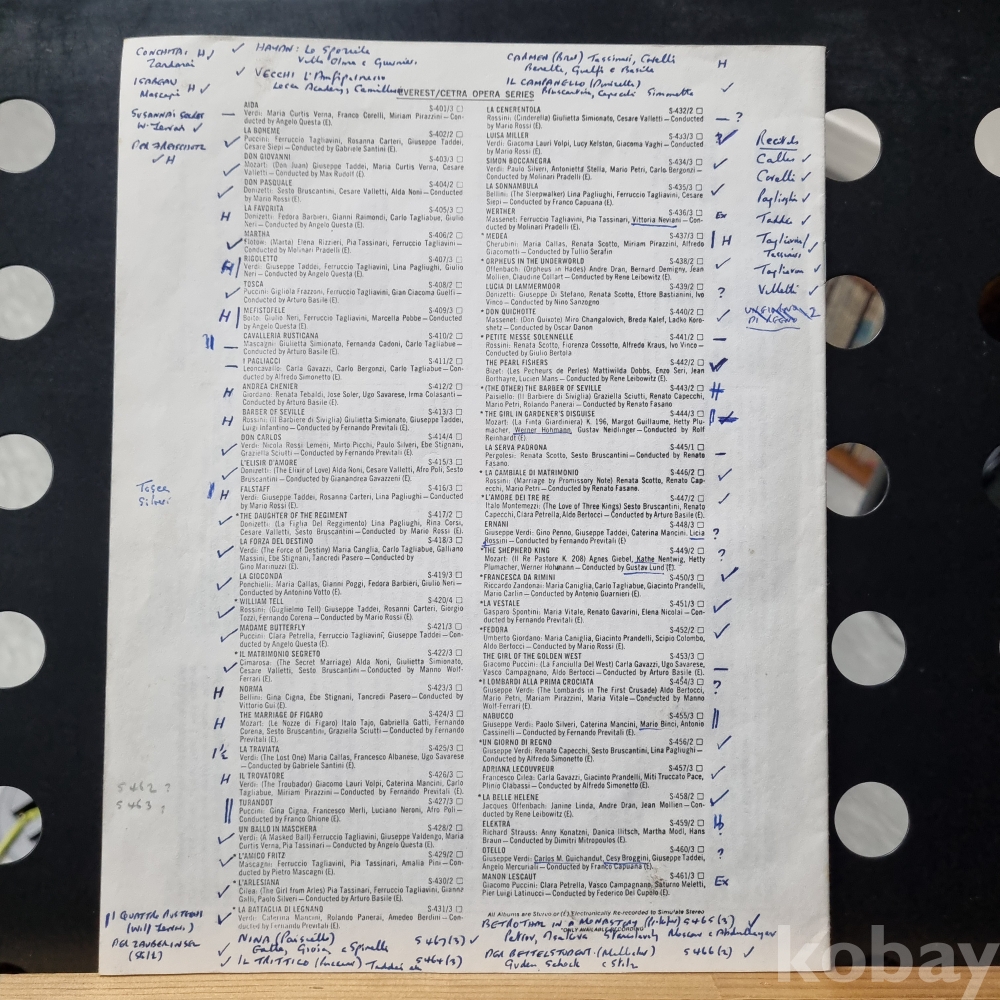 CONCHITA H
Zandonai
HAYDN: Lo Speziale
CARMEN (Bizet) Tassinari, Corelli
H
VECCHI L'Amfiparnasso
IL CAMPANELLO (Donizetti)
EVEREST/CETRA OPERA SERIES
AIDA S-401/3
Verdi: Maria Curtis Verna, Franco Corelli, Miriam Pirazzini — Conducted by Angelo Questa (E).
LA BOHEME S-402/2
Puccini: Ferruccio Tagliavini, Rosanna Carteri, Giuseppe Taddei,
Cesare Siepi — Conducted by Gabriele Santini (E).
DON GIOVANNI S-403/3
Mozart: (Don Juan) Giuseppe Taddei, Maria Curtis Verna, Cesare
Valletti — Conducted by Max Rudolf (E).
DON PASQUALE S-404/2
Donizetti: Sesto Bruscantini, Cesare Valletti, Alda Noni — Conducted
by Mario Rossi (E).
LA FAVORITA S-405/3
Donizetti: Fedora Barbieri, Gianni Raimondi, Carlo Tagliabue, Giulio
Neri — Conducted by Angelo Questa (E).
MARTHA S-406/2
Flotow: (Marta) Elena Rizzieri, Pia Tassinari, Ferruccio Tagliavini —
Conducted by Molinari Pradelli (E).
RIGOLETTO S-407/3
Verdi: Giuseppe Taddei, Ferruccio Tagliavini, Lina Pagliughi, Giulio
Neri — Conducted by Angelo Questa (E).
TOSCA S-408/2
Puccini: Gigliola Frazzoni, Ferruccio Tagliavini, Gian Giacoma Guelfi —
Conducted by Arturo Basile (E).
MEFISTOFELE S-409/3
Boito: Giulio Neri, Ferruccio Tagliavini, Marcella Pobbe — Conducted
by Angelo Questa (E).
CAVALLERIA RUSTICANA S-410/2
Mascagni: Giulietta Simionato, Fernanda Cadoni, Carlo Tagliabue —
Conducted by Arturo Basile (E).
I PAGLIACCI S-411/2
Leoncavallo: Carla Gavazzi, Carlo Bergonzi, Carlo Tagliabue — Conducted
by Alfredo Simonetto (E).
ANDREA CHENIER S-412/2
Giordano: Renata Tebaldi, Jose Soler, Ugo Savarese, Irma Colasanti —
Conducted by Arturo Basile (E).
BARBER OF SEVILLE S-413/3
Rossini: (Il Barbiere di Siviglia) Giulietta Simionato, Giuseppe Taddei,
Luigi Infantino — Conducted by Fernando Previtali (E).
DON CARLOS S-414/4
Verdi: Nicola Rossi Lemeni, Mirto Picchi, Paulo Silveri, Ebe Stignani,
Graziella Sciutti — Conducted by Fernando Previtali (E).
L'ELISIR D'AMORE S-415/3
Donizetti: (The Elixir of Love) Alda Noni, Cesare Valletti, Afro Poli, Sesto
Bruscantini — Conducted by Gianandrea Gavazzeni (E).
FALSTAFF S-416/3
Verdi: Giuseppe Taddei, Rosanna Carteri, Lina Pagliughi — Conducted
by Mario Rossi (E).
*THE DAUGHTER OF THE REGIMENT S-417/2
Donizetti: (La Figlia Del Reggimento) Lina Pagliughi, Rina Corsi,
Cesare Valletti, Sesto Bruscantini — Conducted by Mario Rossi (E)
LA FORZA DEL DESTINO S-418/3
Verdi: (The Force of Destiny) Maria Caniglia, Carlo Tagliabue, Galliano
Massini, Ebe Stignani, Tancredi Pasero — Conducted by
Gino Marinuzzi (E).
LA GIOCONDA S-419/3
Ponchielli: Maria Callas, Gianni Poggi, Fedora Barbieri, Giulio Neri —
Conducted by Antonino Votto (E).
*WILLIAM TELL S-420/4
Rossini: (Guglielmo Tell) Giuseppe Taddei, Rosanni Carteri, Giorgio
Tozzi, Fernando Corena — Conducted by Mario Rossi (E)
MADAME BUTTERFLY S-421/3
Puccini: Clara Petrella, Ferruccio Tagliavini, Giuseppe Taddei — Conducted
by Angelo Questa (E).
*IL MATRIMONIO SEGRETO S-422/3
Cimarosa: (The Secret Marriage) Alda Noni, Giulietta Simionato,
Cesare Valletti, Sesto Bruscantini — Conducted by Manno Wolf-Ferrari (E).
NORMA S-423/3
Bellini: Gina Cigna, Ebe Stignani, Tancredi Pasero — Conducted by
Vittorio Gui (E).
THE MARRIAGE OF FIGARO S-424/3
Mozart: (Le Nozze di Figaro) Italo Tajo, Gabriella Gatti, Fernando
Corena, Sesto Bruscantini, Graziella Sciutti — Conducted by Fernando
Previtali (E).
LA TRAVIATA S-425/3
Verdi: (The Lost One) Maria Callas, Francesco Albanese, Ugo Savarese
— Conducted by Gabriele Santini (E).
IL TROVATORE S-426/3
Verdi: (The Troubador) Giacomo Lauri Volpi, Caterina Mancini, Carlo
Tagliabue, Miriam Pirazzini — Conducted by Fernando Previtali (E).
TURANDOT S-427/3
Puccini: Gina Cigna, Francesco Merli, Luciano Neroni, Afro Poli —
Conducted by Franco Ghione (E).
UN BALLO IN MASCHERA S-428/2
Verdi: (A Masked Ball) Ferruccio Tagliavini, Giuseppe Valdengo, Maria
Curtis Verna, Pia Tassinari — Conducted by Angelo Questa (E).
*L'AMICO FRITZ S-429/2
Mascagni: Ferruccio Tagliavini, Pia Tassinari, Amalia Pini — Conducted
by Pietro Mascagni (E).
*L'ARLESIANA S-430/2
Cilea: (The Girl from Arles) Pia Tassinari, Ferruccio Tagliavini, Gianna
Galli, Paolo Silveri — Conducted by Arturo Basile (E)
*LA BATTAGLIA DI LEGNANO S-431/3
Verdi: Caterina Mancini, Rolando Panerai, Amedeo Berdini — Conducted
by Fernando Previtali (E).
LA CENERENTOLA S-432/2
Rossini: (Cinderella) Giulietta Simionato, Cesare Valletti — Conducted
by Mario Rossi (E)
LUISA MILLER S-433/3
Verdi: Giacoma Lauri Volpi, Lucy Kelston, Giacoma Vaghi — Conducted
by Mario Rossi (E)
SIMON BOCCANEGRA S-434/3
Verdi: Paulo Silveri, Antonietta Stella, Mario Petri, Carlo Bergonzi —
Conducted by Molinari Pradelli (E).
LA SONNAMBULA S-435/3
Bellini: (The Sleepwalker) Lina Pagliughi, Ferruccio Tagliavini, Cesare
Siepi — Conducted by Franco Capuana (E)
WERTHER S-436/3
Massenet: Ferruccio Tagliavini, Pia Tassinari, Vittoria Neviani — Conducted
by Molinari Pradelli (E).
*MEDEA S-437/3
Cherubini: Maria Callas, Renata Scotto, Miriam Pirazzini, Alfredo
Giacomotti — Conducted by Tullio Serafin
*ORPHEUS IN THE UNDERWORLD S-438/2
Offenbach: (Orpheus in Hades) Andre Dran, Bernard Demigny, Jean
Mollien, Claudine Collart — Conducted by Rene Leibowitz (E).
LUCIA DI LAMMERMOOR S-439/2
Donizetti: Giuseppe Di Stefano, Renata Scotto, Ettore Bastianini, Ivo
Vinco — Conducted by Nino Sanzogno
*DON QUICHOTTE S-440/2
Massenet: (Don Quixote) Miro Changalovich, Breda Kalef, Ladko Koroshetz
— Conducted by Oscar Danon
*PETITE MESSE SOLENNELLE S-441/2
Rossini: Renata Scotto, Fiorenza Cossotto, Alfredo Kraus, Ivo Vinco —
Conducted by Giulio Bertola
THE PEARL FISHERS S-442/2
Bizet: (Les Pecheurs de Perles) Mattiwilda Dobbs, Enzo Seri, Jean
Berthayre, Lucien Mans — Conducted by Rene Leibowitz (E).
*(THE OTHER) THE BARBER OF SEVILLE S-443/2
Paisiello: (Il Barbiere di Siviglia) Graziella Sciutti, Renato Capecchi,
Mario Petri, Rolando Panerai — Conducted by Renato Fasano
*THE GIRL IN GARDENER'S DISGUISE S-444/3
Mozart: (La Finta Giardiniera) K. 196, Margot Guillaume, Hetty Plumacher,
Werner Hohmann, Gustav Neidlinger — Conducted by Rolf
Reinhardt (E).
LA SERVA PADRONA S-445/1
Pergolesi: Renata Scotto, Sesto Bruscantini — Conducted by Renato
Fasano.
*LA CAMBIALE DI MATRIMONIO S-446/2
Rossini: (Marriage by Promissory Note) Renata Scotto, Renato Capecchi,
Mario Petri — Conducted by Renato Fasano.
*L'AMORE DEI TRE RE S-447/2
Italo Montemezzi: (The Love of Three Kings) Sesto Bruscantini, Renato
Capecchi, Clara Petrella, Aldo Bertocci — Conducted by Arturo Basile (E).
ERNANI S-448/3
Giuseppe Verdi: Gino Penno, Giuseppe Taddei, Caterina Mancini, Licia
Rossini — Conducted by Fernando Previtali (E)
*THE SHEPHERD KING S-449/2
Mozart: (Il Re Pastore K. 208) Agnes Giebel, Kathe Nentwig, Hetty
Plumacher, Werner Hohmann — Conducted by Gustav Lund (E).
*FRANCESCA DA RIMINI S-450/3
Riccardo Zandonai: Maria Caniglia, Carlo Tagliabue, Giacinto Prandelli,
Mario Carlin — Conducted by Antonio Guarnieri (E).
*LA VESTALE S-451/3
Gasparo Spontini: Maria Vitale, Renato Gavarini, Elena Nicolai — Conducted
by Fernando Previtali (E).
*FEDORA S-452/2
Umberto Giordano: Maria Caniglia, Giacinto Prandelli, Scipio Colombo,
Aldo Bertocci — Conducted by Mario Rossi (E)
THE GIRL OF THE GOLDEN WEST S-453/3
Giacomo Puccini: (La Fanciulla Del West) Carla Gavazzi, Ugo Savarese,
Vasco Campagnano, Aldo Bertocci — Conducted by Arturo Basile (E)
*I LOMBARDI ALLA PRIMA CROCIATA S-454/3
Giuseppe Verdi: (The Lombards in The First Crusade) Aldo Bertocci,
Mario Petri, Miriam Pirazzini, Maria Vitale — Conducted by Manno
Wolf-Ferrari (E).
NABUCCO S-455/3
Giuseppe Verdi: Paulo Silveri, Caterina Mancini, Mario Binci, Antonio
Cassinelli — Conducted by Fernando Previtali (E).
*UN GIORNO DI REGNO S-456/2
Giuseppe Verdi: Renato Capecchi, Sesto Bruscantini, Lina Pagliughi —
Conducted by Alfredo Simonetto (E).
ADRIANA LECOUVREUR S-457/3
Francesco Cilea: Carla Gavazzi, Giacinto Prandelli, Miti Truccato Pace,
Plinio Clabassi — Conducted by Alfredo Simonetto (E).
*LA BELLE HELENE S-458/2
Jacques Offenbach: Janine Linda, Andre Dran, Jean Mollien — Conducted
by Rene Leibowitz (E).
ELEKTRA S-459/2
Richard Strauss: Anny Konatzni, Danica Ilitsch, Martha Modl, Hans
Braun — Conducted by Dimitri Mitropoulos (E).
OTELLO S-460/3
Giuseppe Verdi: Carlos M. Guichandut, Cesy Broggini, Giuseppe Taddei,
Angelo Mercuriali — Conducted by Franco Capuana (E).
MANON LESCAUT S-461/3
Giacomo Puccini: Clara Petrella, Vasco Campagnano, Saturno Meletti,
Pier Luigi Latinucci — Conducted by Federico Del Cupolo (E).
All Albums are Stereo or (E) Electronically Re-recorded to Simulate Stereo
*ONLY AVAILABLE RECORDING
Recitals
Callas
Corelli
Pagliughi
Taddei
Tagliavini/
Tassinari
Tagliavini
Valletti
UN GIORNO
DI REGNO
Tosca
Silveri
S 462 ?
S 463 ?
I QUATTRO RUSTEGHI
(Wolf Ferrari)
DER ZAUBERINSEL
NINA (Paisiello) S 467(3)
IL TRITTICO (Puccini) Taddei S 464(3)
BETROTHAL IN A MONASTERY S 465(3)
DER BETTELSTUDENT (Millocker) S 466(2)
kobay